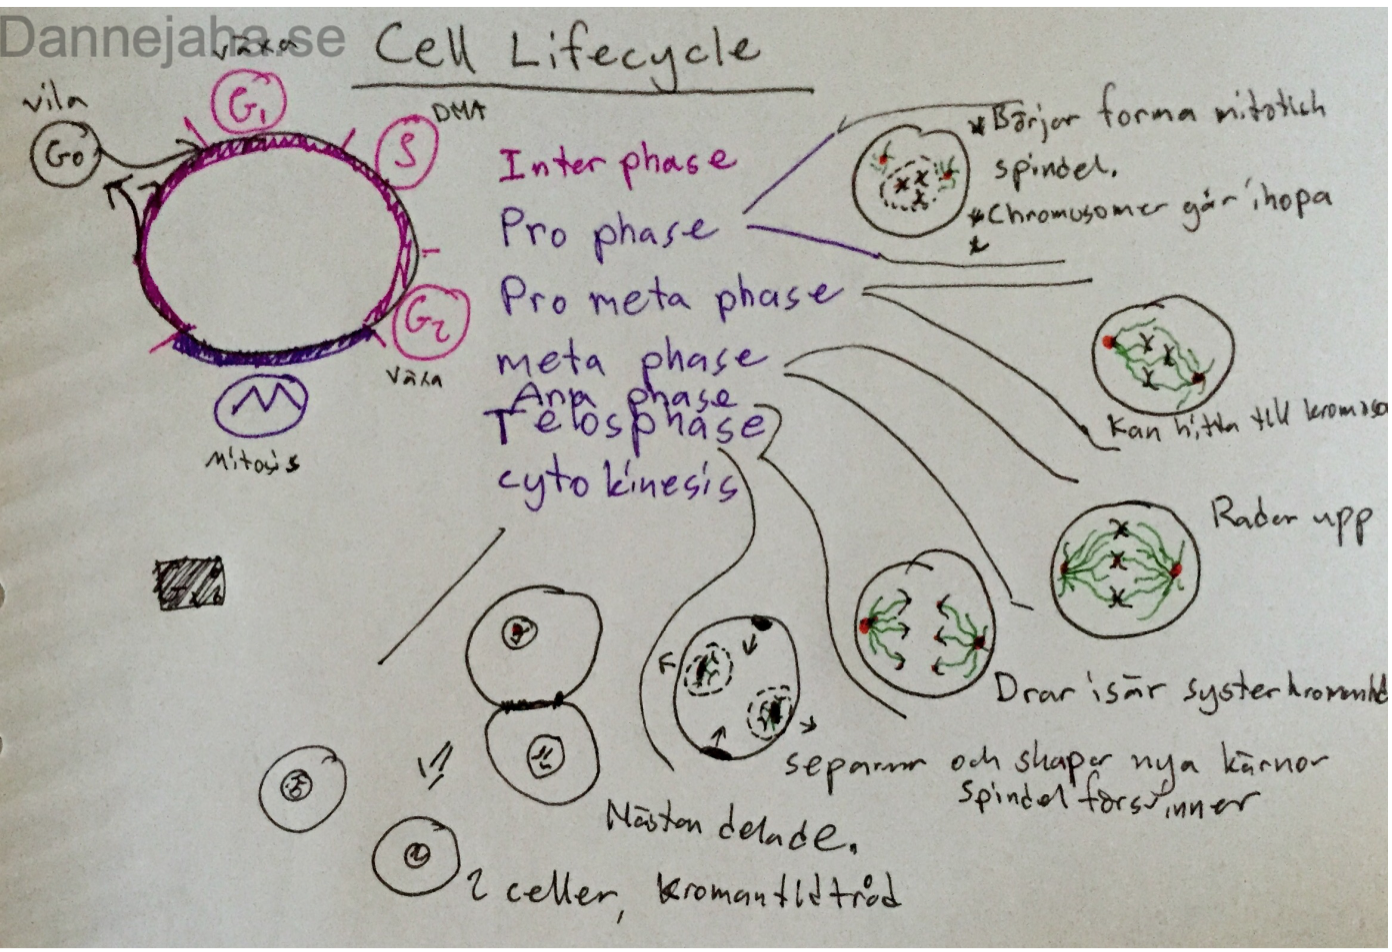 Dannejaha.se
växa
Cell Lifecycle
vila
G₁
G₀
DMA
S
Inter phase
Börjar forma mitotich
spindel.
Chromosomer går ihopa
Pro phase
Pro meta phase
G₂
växa
meta phase
Ana phase
Telosphase
cyto kinesis
M
Mitosis
Kan hitta till
Radar upp
Drar isär
separerar och skapar nya kärnor
spindel försvinner
Nästan delade.
2 celler, kromantidtråd